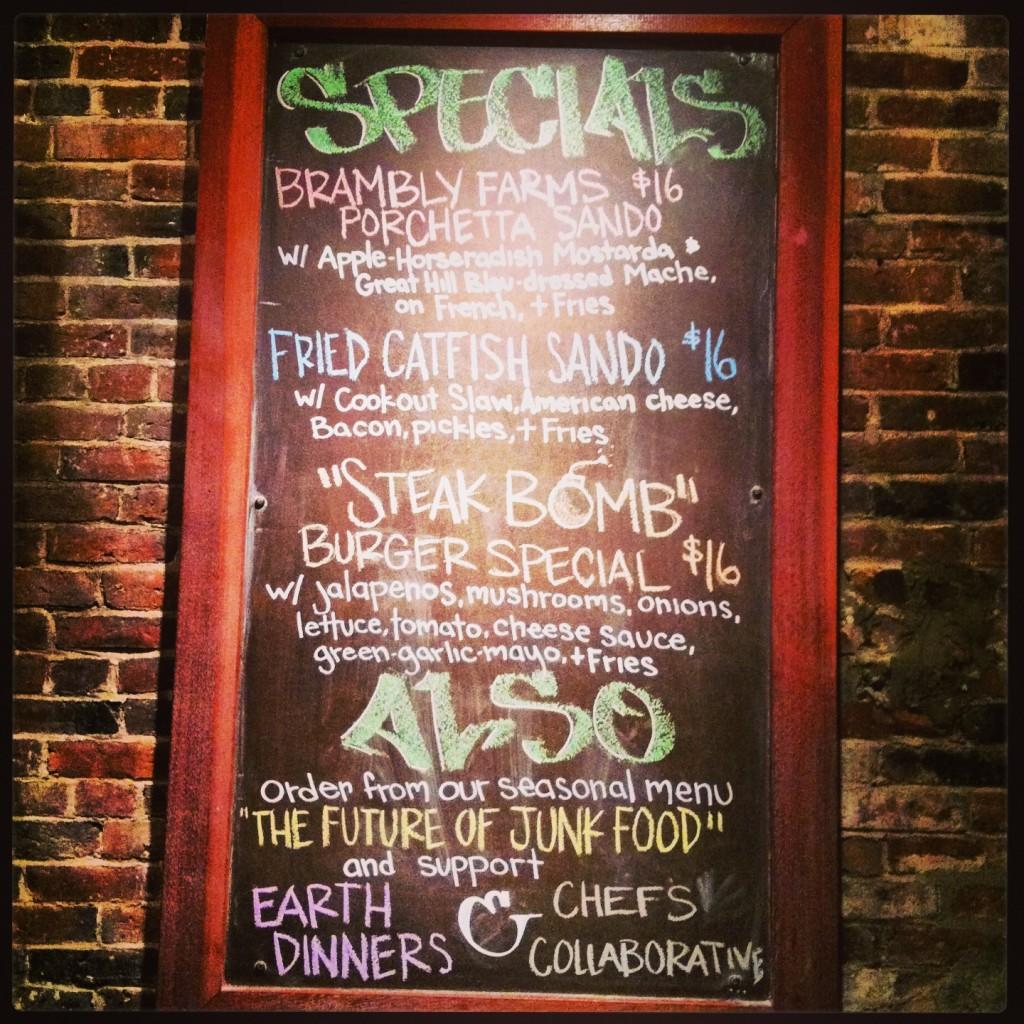 SPECIALS
BRAMBLY FARMS $16
PORCHETTA SANDO
w/ Apple-Horseradish Mostarda &
Great Hill Bleu-dressed Mache,
on French, + Fries
FRIED CATFISH SANDO $16
w/ Cookout Slaw, American cheese,
Bacon, pickles, + Fries
"STEAK BOMB"
BURGER SPECIAL $16
w/ jalapenos, mushrooms, onions,
lettuce, tomato, cheese sauce,
green-garlic-mayo, + Fries
ALSO
order from our seasonal menu
"THE FUTURE OF JUNK FOOD"
and support
EARTH DINNERS & CHEFS COLLABORATIVE